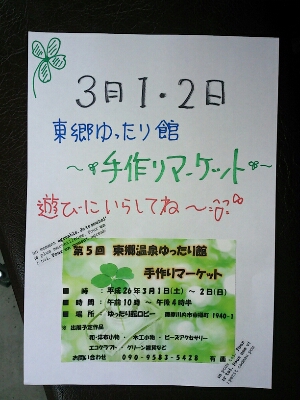 3月1・2日
東郷ゆったり館
～手作りマーケット～
遊びにいらしてね～
第5回 東郷温泉ゆったり館
手作りマーケット
日時：平成26年3月1日(土)～2日(日)
時間：午前10時～午後4時半
場所：ゆったり館ロビー 薩摩川内市東郷町 1940-1
※ 出展予定作品
和・洋布小物・木工小物・ビーズアクセサリー
エコクラフト・グリーン雑貨など
お問い合わせ 090-9583-5428 有薗